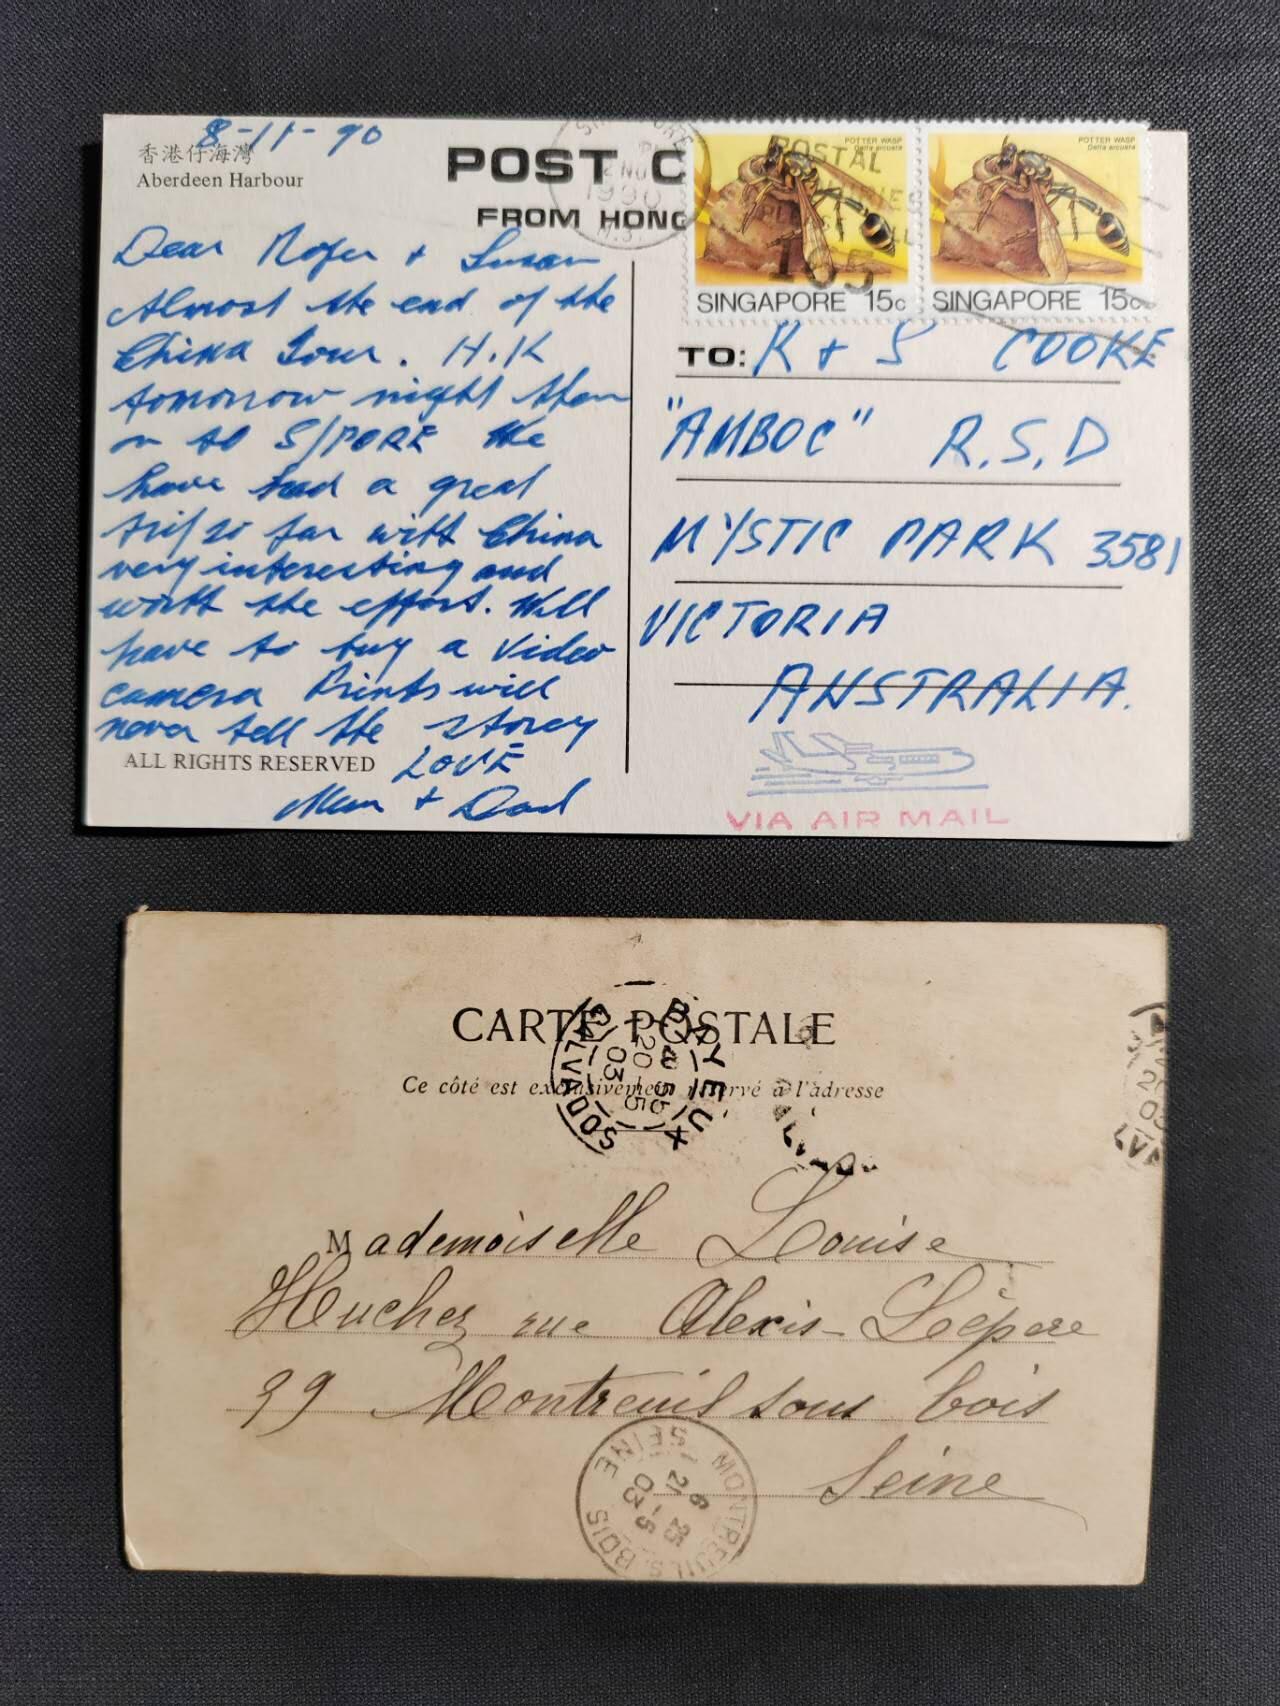 8-11-90
香港仔海灣
Aberdeen Harbour
POST C
FROM HONG
1990
POSTAL
165
POTTER WASP
Delta arcuata
SINGAPORE 15c
POTTER WASP
Delta arcuata
SINGAPORE 15c
Dear Roger + Susan
Almost the end of the
China Tour. H.K
tomorrow night then
on to S/PORE We
have had a great
trip so far with China
very interesting and
worth the effort. Will
have to buy a video
camera Prints will
never tell the storey
LOVE
Mum + Dad
ALL RIGHTS RESERVED
TO: R + S COOKE
"AMBOC" R.S.D
MYSTIC PARK 3581
VICTORIA
AUSTRALIA.
VIA AIR MAIL
CARTE POSTALE
Ce côté est exclusivement réservé à l'adresse
BAYEUX
CALVADOS
8 55
20 5
03
Mademoiselle Louise
Huchez rue Alexis-Lépere
99 Montreuil sous bois
Seine
MONTREUIL-S-BOIS
SEINE
6 25
21 - 5
03